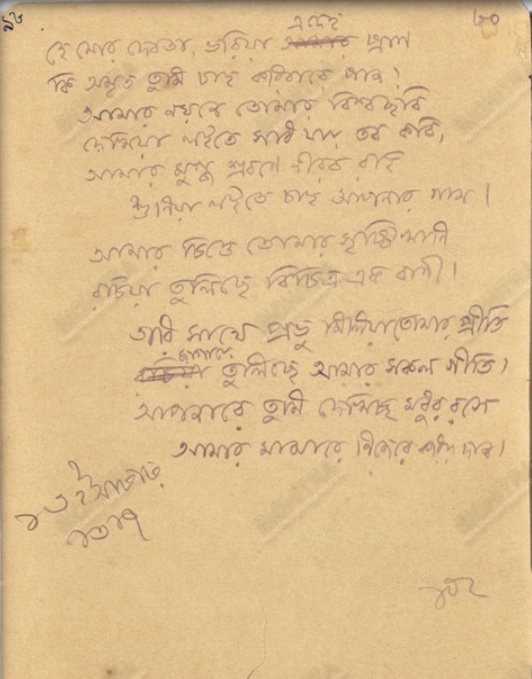 এদেহ
হে মোর দেবতা, ভরিয়া আমার প্রাণ
কি অমৃত তুমি চাহ করিবারে পান!
আমার নয়নে তোমার বিশ্বছবি
দেখিয়া লইতে সাধ যায় তব কবি,
আমার মুগ্ধ শ্রবণে নীরব রহি
শুনিয়া লইতে চাহ আপনার গান।
আমার চিত্তে তোমার সৃষ্টিখানি
রচিয়া তুলিছে বিচিত্র এক বাণী।
তারি সাথে প্রভু মিলিয়া তোমার প্রীতি
জাগায়ে
তুলিছে আমার সকল গীতি।
আপনারে তুমি দেখিছ মধুর রসে
আমার মাঝারে নিজেরে করিয়া দান।
১৩ই আষাঢ়
১৩১৭